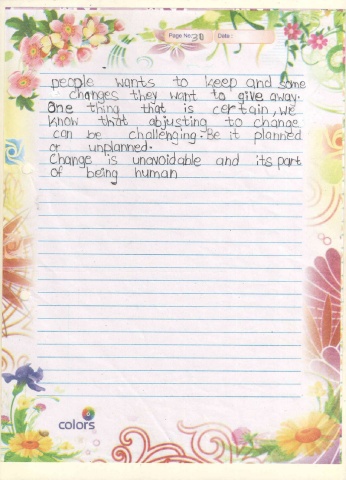 Page No: 30 Date:
people wants to keep and some
changes they want to give away.
One thing that is certain, we
know that abjusting to change
can be challenging. Be it planned
or unplanned.
Change is unavoidable and its part
of being human
colors